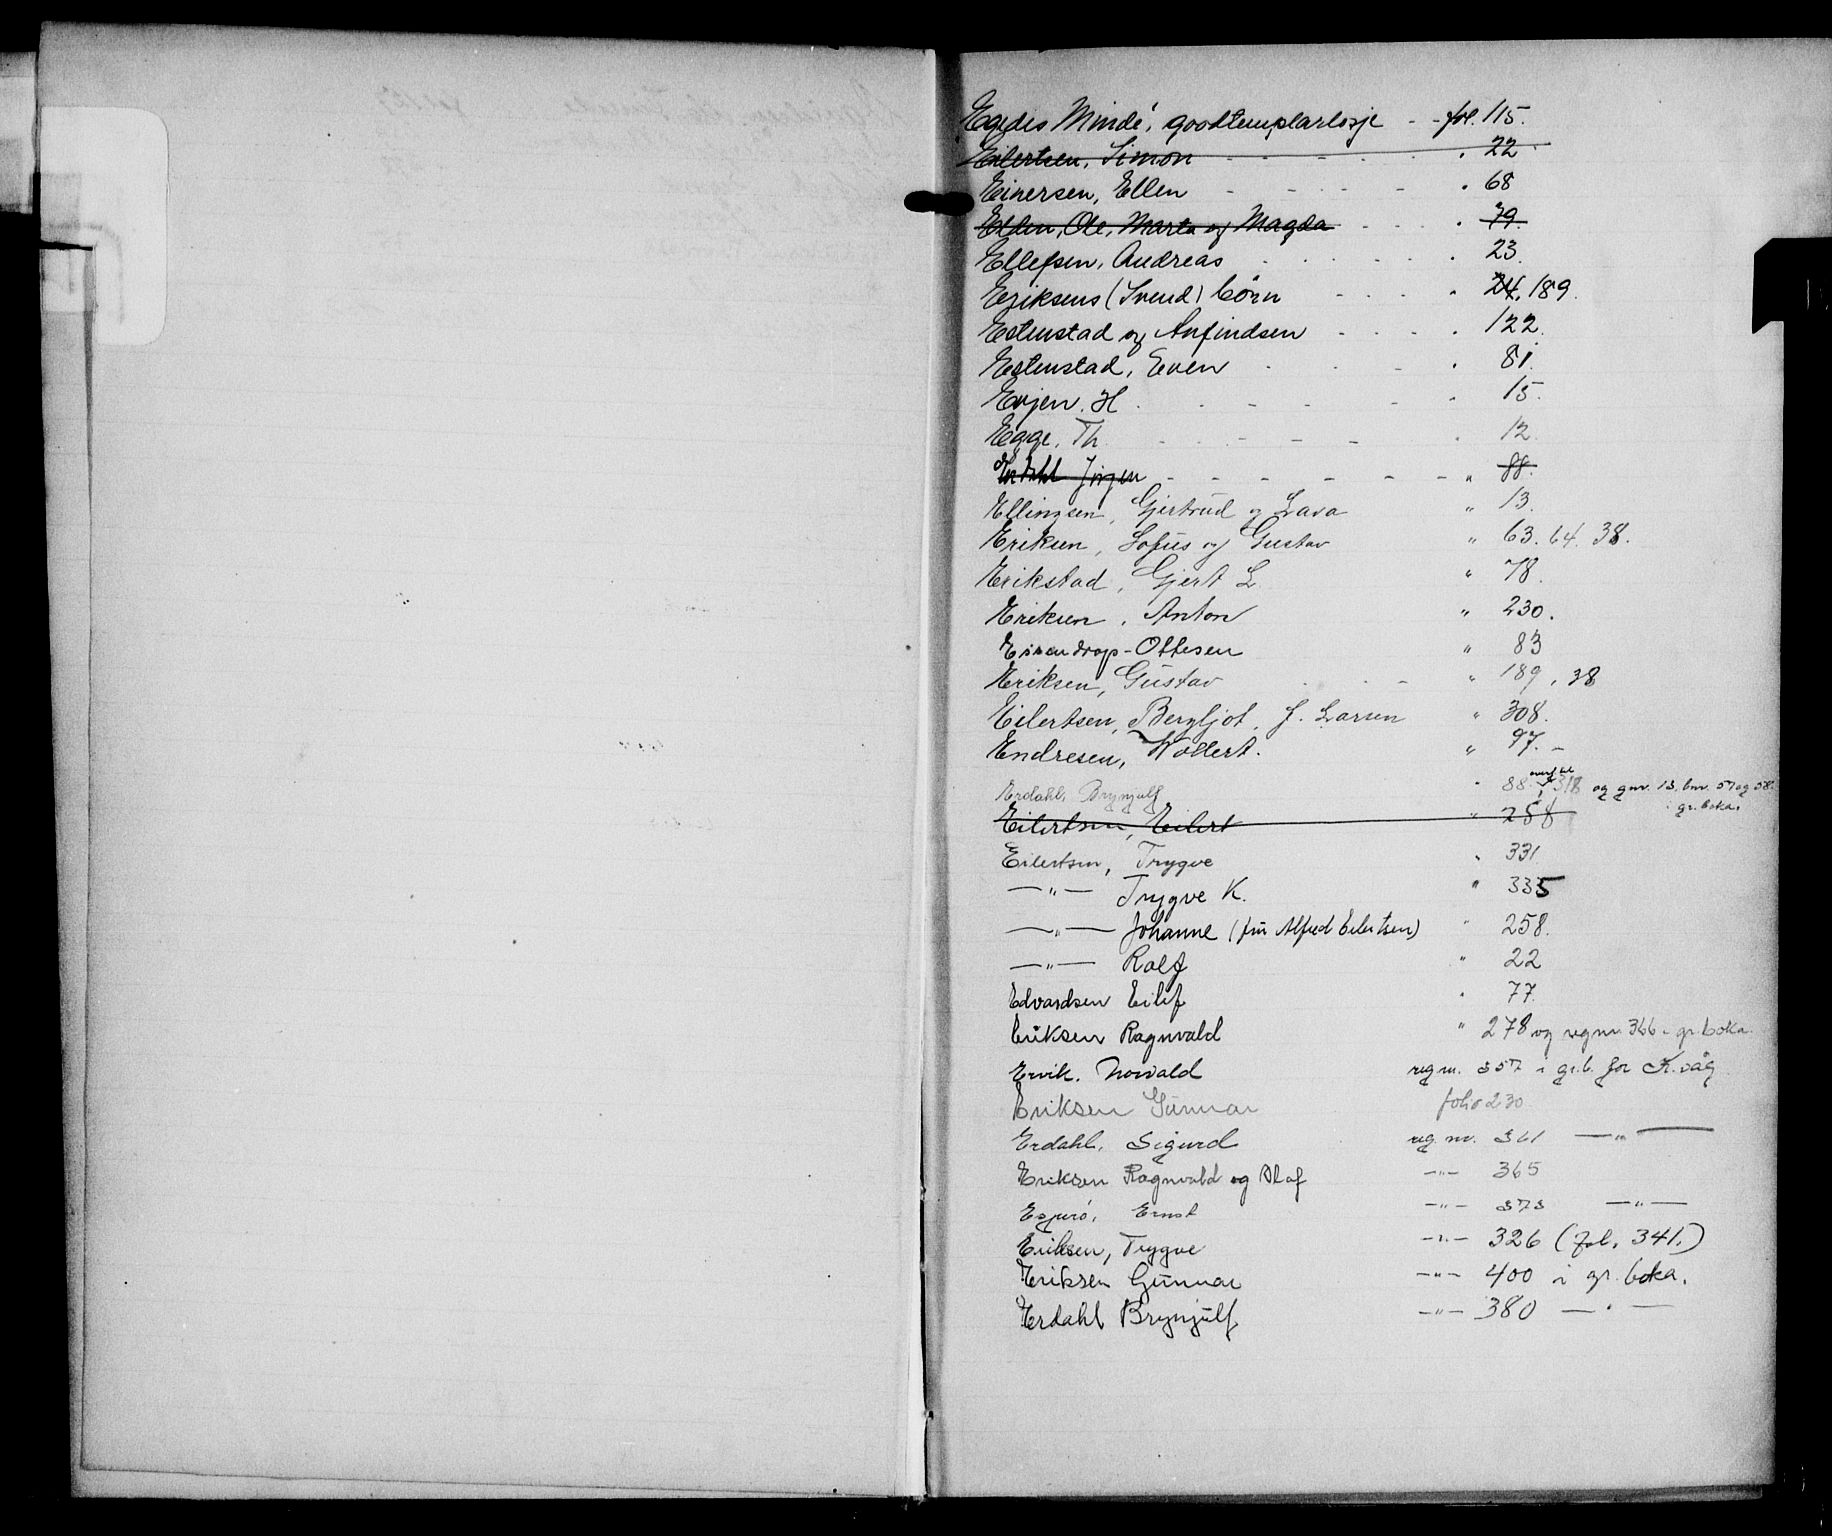 Egedes Minde, goodtemplarlosje - - fol. 115.
Eilertsen, Simon - - - - - . 22
Einersen, Ellen - - - - . 68
Elden, Ole, Marta og Magda - - - . 79.
Ellefsen, Andreas . 23.
Eriksens (Svend) börn - - - . 24, 189.
Estenstad og Anfindsen - - - . 122.
Estenstad, Even - - - . 81.
Evjen, H. - - - - - . 15.
Egge, Th. - - - - - . 12.
Erdahl Jörgen - - - - - - " 88.
Ellingsen, Gjertrud og Lava " 13.
Eriksen, Sofus og Gustav " 63. 64. 38.
Erikstad, Gjert L. " 78.
Eriksen, Anton " 230.
Eisendrop-Ottesen " 83
Eriksen, Gustav " 189, 38
Eilertsen, Bergljot, f. Larsen " 308.
Endresen, Wollert. " 97. -
Erdahl, Brynjulf " 88. 318 og gnr. 13, bnr. 57 og 58.
i gr.boka.
Eilertsen, Eilert " 258
Eilertsen, Trygve " 331
—"— Trygve K. " 335
—"— Johanne (fru Alfred Eilertsen) " 258.
—"— Rolf " 22
Edvardsen Eilif " 77.
Eriksen Ragnvald " 278 og regnr. 366 i gr.boka.
Ervik. Norvald reg nr. 357 i gr.b. for K.våg
Eriksen Gunnar folio 230
Erdahl, Sigurd reg. nr. 361 —"—
Eriksen Ragnvald og Olaf —"— 365
Ernst —"— 373 —"—
Eriksen, Trygve —"— 326 (fol. 341.)
Eriksen Gunnar —"— 400 i gr. boka.
Erdahl Brynjulf —"— 380 —"—